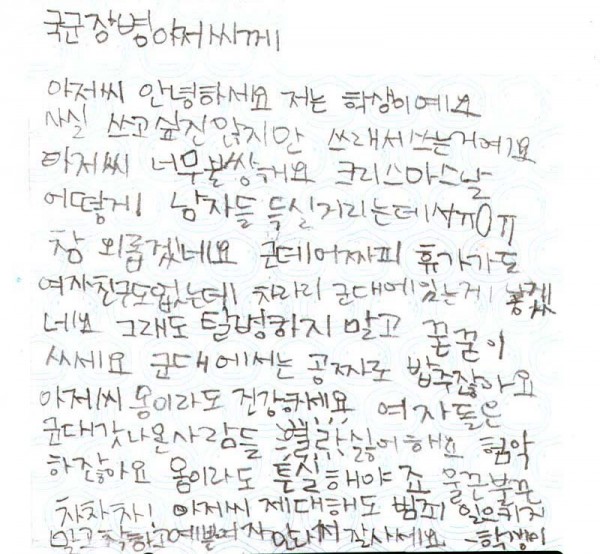 국군장병아저씨께
아저씨 안녕하세요 저는 학생이예요
사실 쓰고싶진 않지만 쓰래서쓰는거에요
아저씨 너무불쌍해요 크리스마스날
어떻게 남자들 득실거리는데서ㅠ0ㅠ
참 외롭겠네요 군데어짜피 휴가가도
여자친구도없는데 차라리 군대에있는게 낳겠
네요 그래도 탈병하지 말고 꾿꾿이
씨세요 군대에서는 공짜로 밥주잖아요
아저씨 몽이라도 건강하세요 여자들은
군대갓나온사람들 별라싫어해요 험악
하잖아요 몽이라도 튼실해야죠 울끈불끈
차차차! 아저씨 제대해도 범죄 일으키지
말고 착하고예쁜여자 만나서잘사세요 -학생이